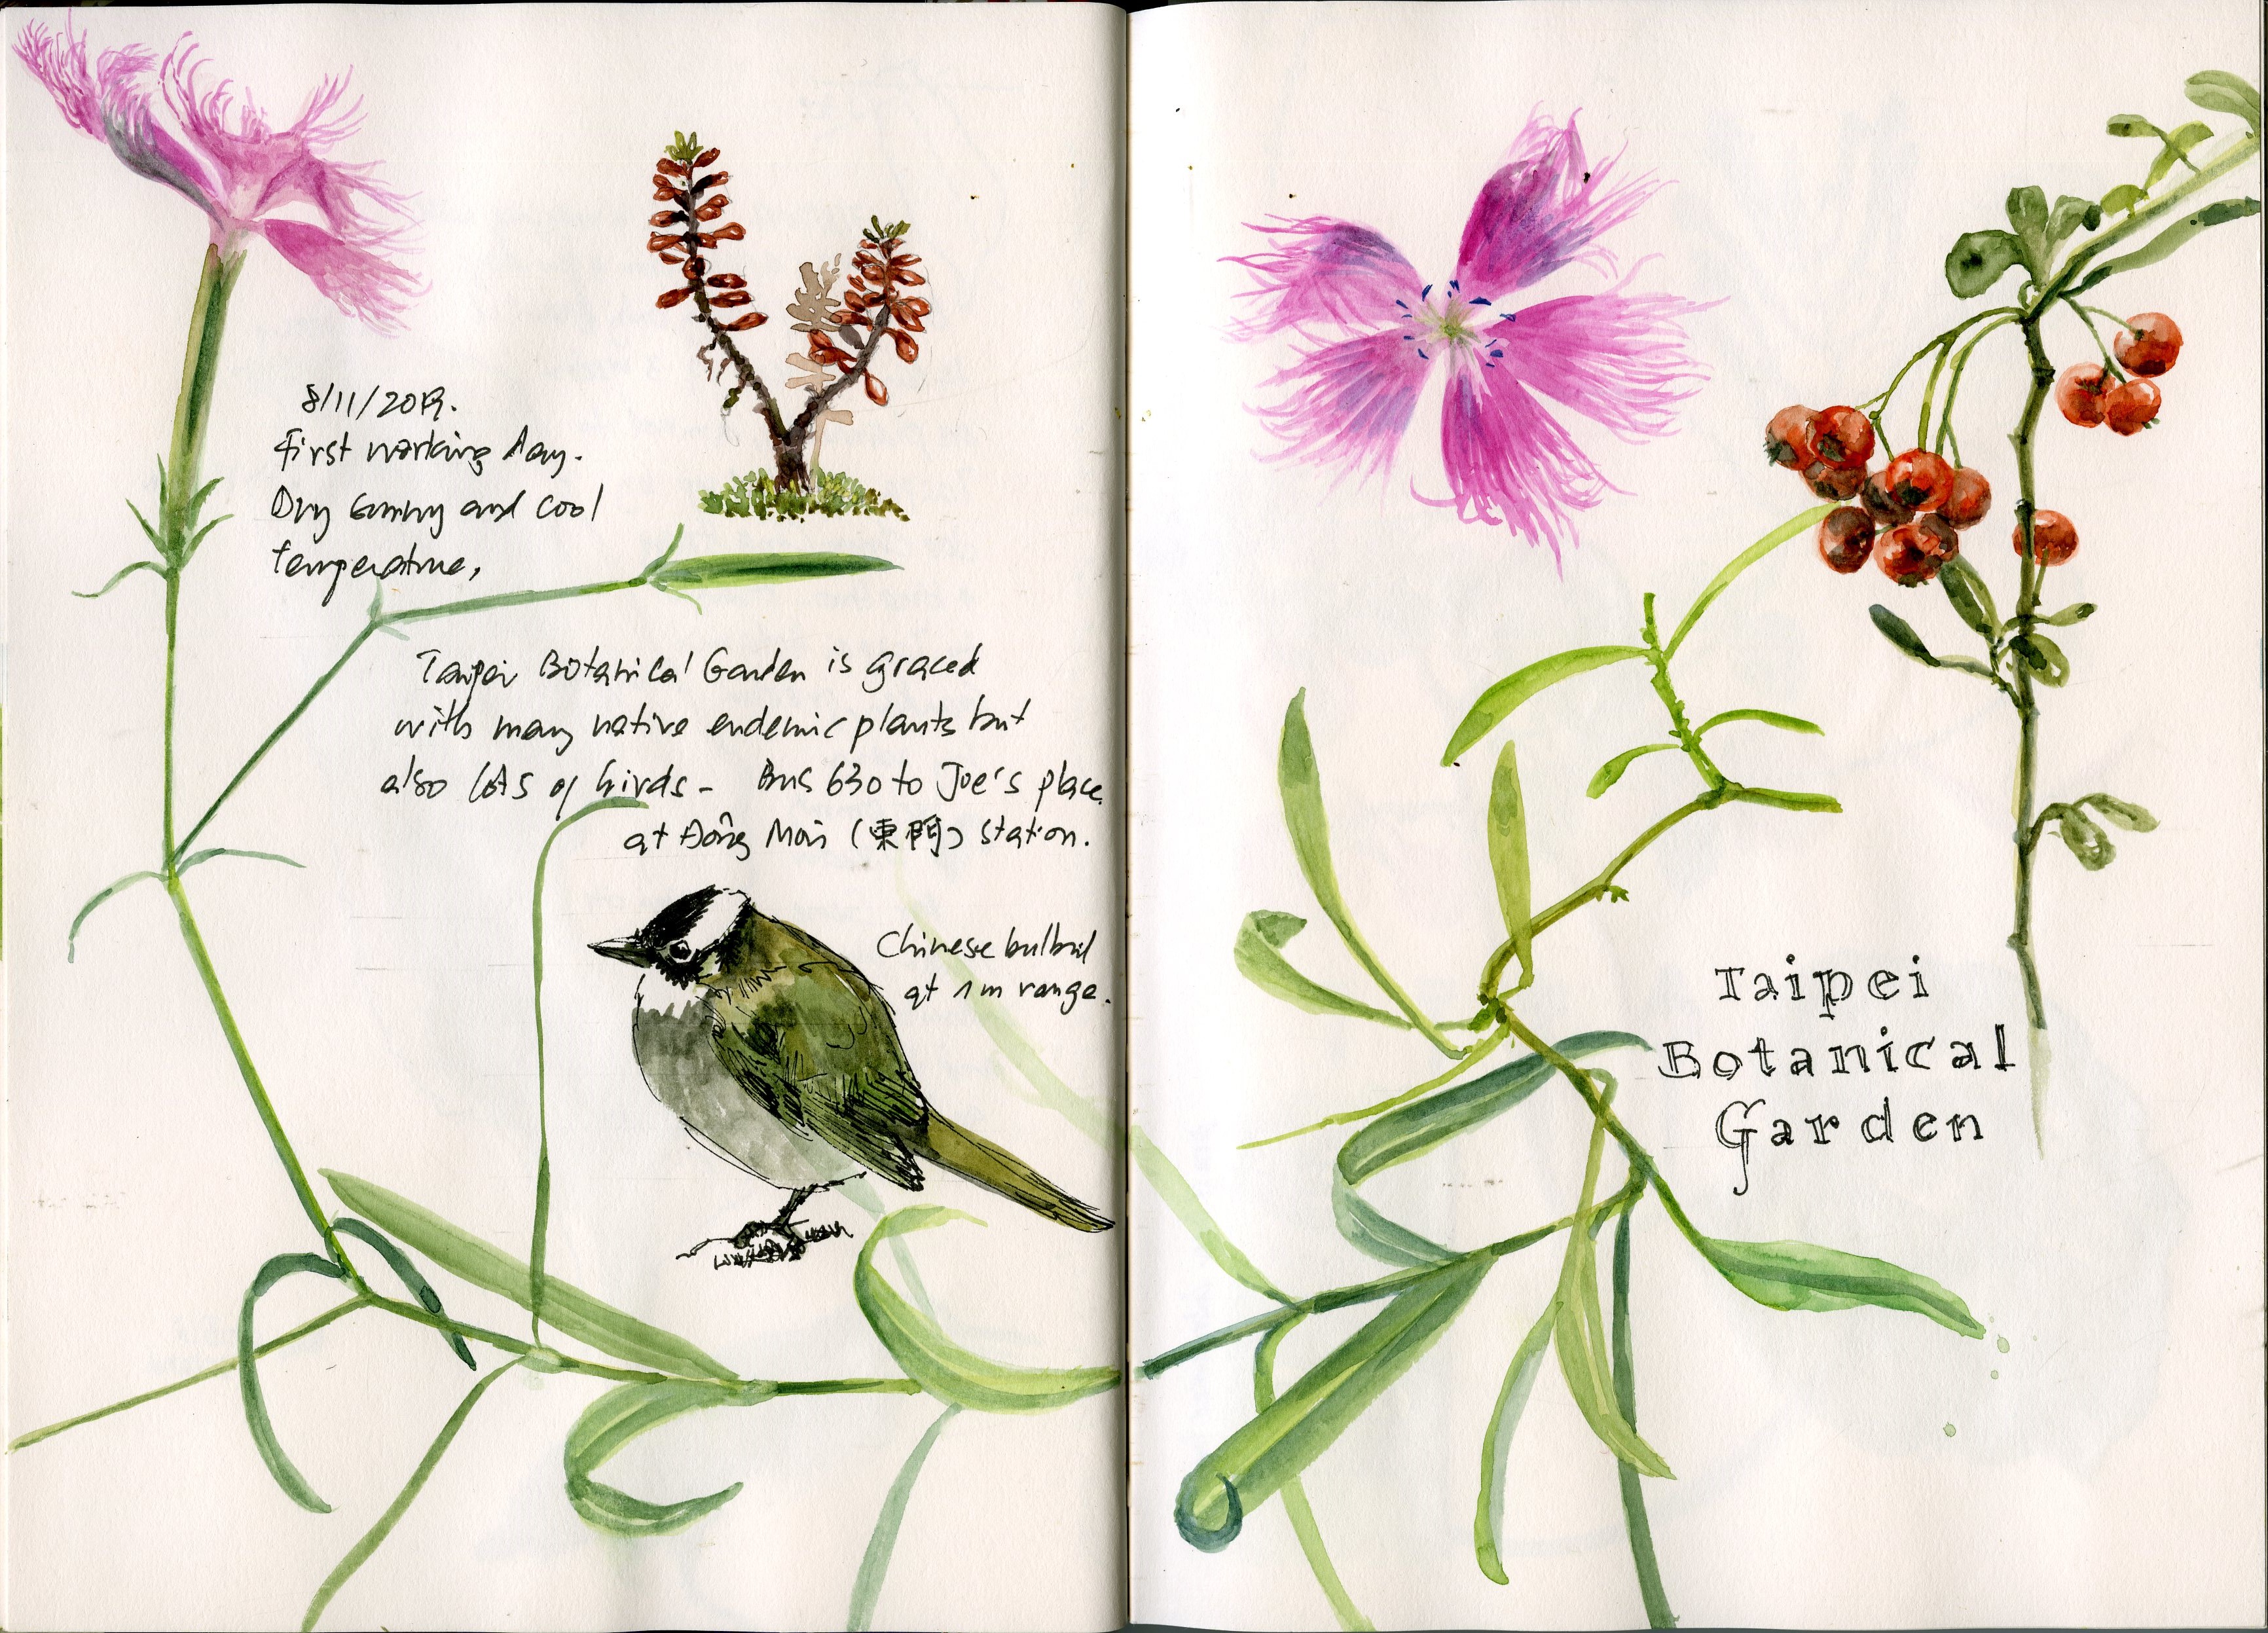 8/11/2019.
First working day.
Dry sunny and cool
temperature,
Taipei Botanical Garden is graced
with many native endemic plants but
also lots of birds - Bus 630 to Joe's place
at Đông Môn (東門) station.
Chinese bulbul
at 1m range.
Taipei
Botanical
Garden